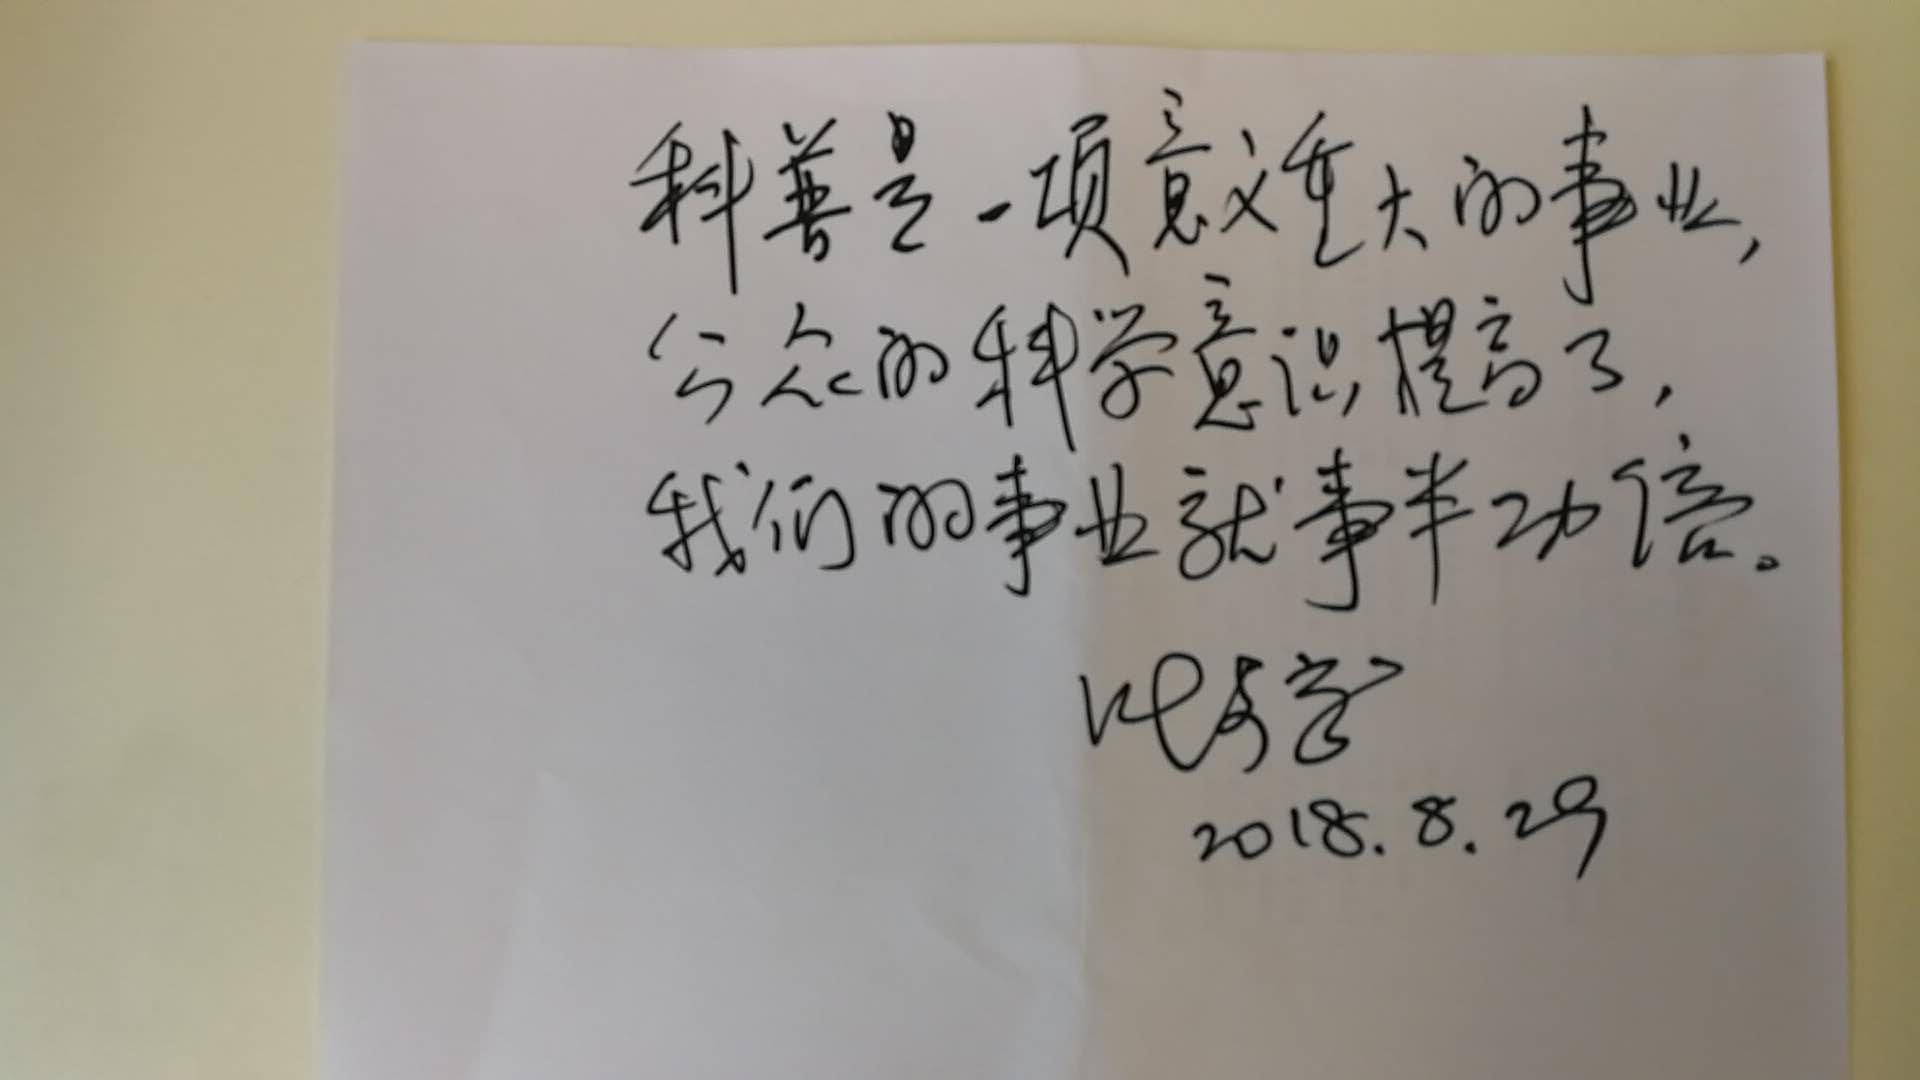 科普是一项意义重大的事业,
公众的科学意识提高了,
我们的事业就事半功倍。
2018.8.29